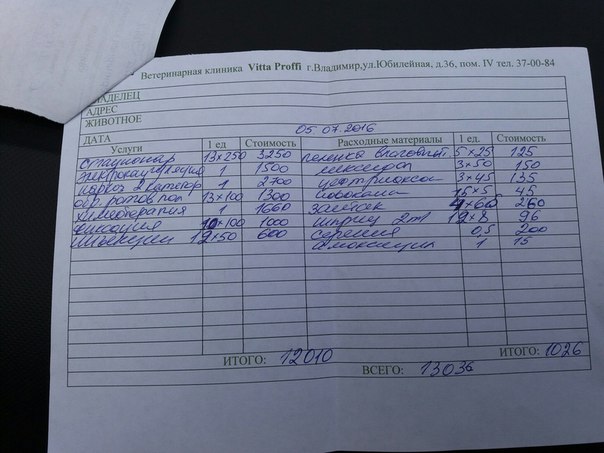 Ветеринарная клиника Vitta Proffi г.Владимир,ул.Юбилейная, д.36, пом. IV тел. 37-00-84
ВЛАДЕЛЕЦ
АДРЕС
ЖИВОТНОЕ
ДАТА 05.07.2016
Услуги 1 ед Стоимость Расходные материалы 1 ед. Стоимость
стационар 13×250 3250 пеленка 5×25 125
электрокоагуляция 1 1500 мексидол 3×50 150
наркоз 2 категор 1 2700 цефтриаксон 3×45 135
обр. ротов пол 13×100 1300 45
химиотерапия 1 1660 260
10×100 1000 шприц 2ml 12×8 96
инъекции 12×50 600 серения 0,5 200
амоксицил 1 15
ИТОГО: 12010 ИТОГО: 1026
ВСЕГО: 13036